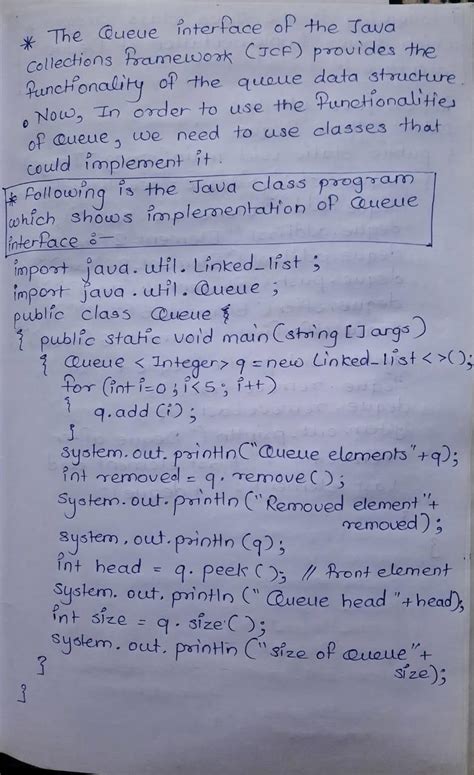 * The Queue interface of the Java
collections framework (JCF) provides the
functionality of the queue data structure.
• Now, In order to use the functionalities
of Queue, we need to use classes that
could implement it.
* Following is the Java class program
which shows implementation of Queue
interface :-
import java.util.Linked_list ;
import java.util.Queue ;
public class Queue {
{ public static void main(string [] args)
{ Queue < Integer> q = new Linked_list <>();
for (int i=0 ; i<5 ; i++)
{
q.add (i) ;
}
system.out.println("Queue elements"+q);
int removed = q.remove( );
system.out.println ("Removed element"+
removed) ;
system.out.println (q);
int head = q.peek ( ); // front element
system.out.println (" Queue head "+head);
int size = q.size( );
system.out.println ("size of Queue"+
size);
}
}